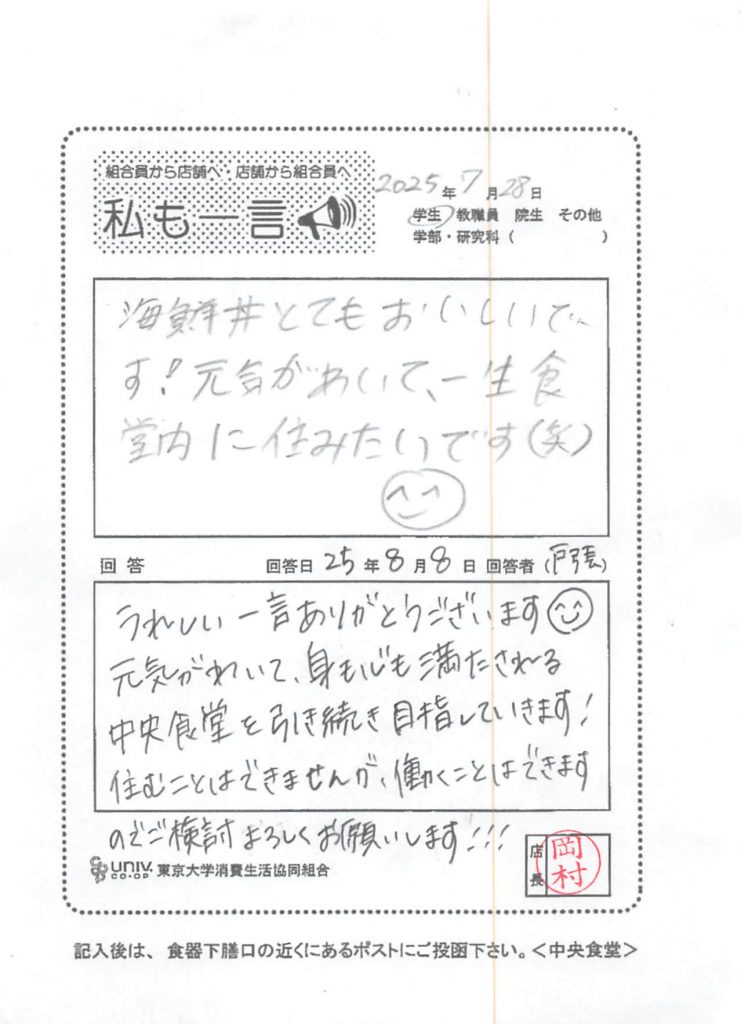 組合員から店舗へ・店舗から組合員へ
私も一言
2025年7月28日
学生 教職員 院生 その他
学部・研究科（ ）
海鮮丼とてもおいしいで
す！元気がわいて、一生食
堂内に住みたいです(笑)
回答 回答日 25年8月8日 回答者（戸張）
うれしい一言ありがとうございます
元気がわいて、身も心も満たされる
中央食堂を引き続き目指していきます！
住むことはできませんが、働くことはできます
のでご検討よろしくお願いします！！！
UNIV.
CO-OP 東京大学消費生活協同組合
店長
岡村
記入後は、食器下膳口の近くにあるポストにご投函下さい。＜中央食堂＞